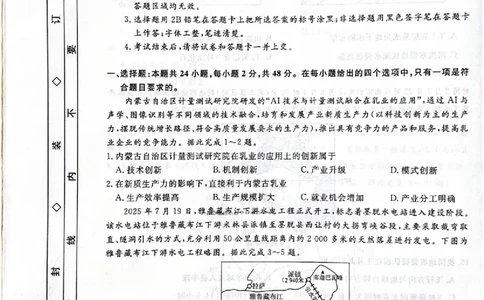 答题区域均无效。
3.选择题用2B铅笔在答题卡上把所选答案的标号涂黑;非选择题用黑色签字笔在答题卡
上作答;字体工整,笔迹清楚。
4.考试结束后,请将试卷和答题卡一并上交。
一、选择题:本题共24小题,每小题2分,共48分。在每小题给出的四个选项中,只有一项是符
合题目要求的。
内蒙古自治区计量测试研究院研发的“AI技术与计量测试融合在乳业的应用”,通过AI与
声学、图像识别等不同领域的技术融合,培育和发展产业新质生产力(以科技创新为主的生产
力,摆脱传统增长路径、符合高质量发展要求的生产力),推出具有竞争力的产品和服务,提高乳
业企业的竞争能力。据此完成1~2题。
1.内蒙古自治区计量测试研究院在乳业的应用上的创新属于
A.技术创新 B.机制创新 C.产业升级 D.模式创新
2.在新质生产力的影响下,直接利于内蒙古乳业
A.生产效率提高 B.生产规模扩大 C.就业机会增加 D.产业分工明确
2025年7月19日,雅鲁藏布江下游水电工程正式开工,标志着墨脱水电站进入建设阶段。
该水电站位于雅鲁藏布江下游米林县派镇至墨脱县西让村的大拐弯峡谷段,主要采取截弯取
直、隧洞引水的方式,充分利用50公里直线距离内约2000多米的天然落差进行发电。下图为
雅鲁藏布江下游水电工程略图。据此完成3~5题。
派镇
(2940米)
南迦巴瓦峰
拉萨
雅鲁藏布江
订
要
不
装
内
线
封